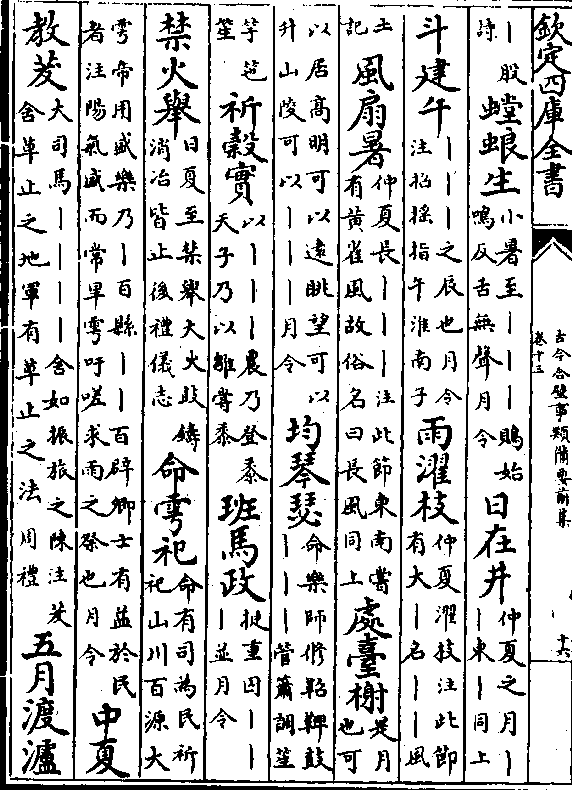 欽定四庫全書
古今合璧事類備要前集
卷十三
十六
丨股詩 螳蜋生 小暑至丨丨丨鵙始鳴反舌無聲月令 日在井 仲夏之月丨丨東丨同上
斗建午 丨丨丨之辰也月令注招搖指午淮南子 雨濯枝 仲夏濯枝注此節有大丨名丨丨風
土記 風扇暑 仲夏長丨丨丨注此節東南嘗有黃雀風故俗名曰長風同上 處臺榭 是月也可
以居高明可以遠眺望可以升山陵可以丨丨丨月令 均琴瑟 命樂師修鞀鞞鼓丨丨丨管簫調笙
竽笆笙 祈穀實 以丨丨丨農乃登黍天子乃以雛嘗黍 班馬政 挺重囚丨丨丨並月令
禁火舉 日夏至禁舉大火鼓鑄消冶皆止後禮儀志 命雩祀 命有司為民祈祀山川百源大
雩帝用盛樂乃丨百縣丨丨百辟卿士有益於民者注陽氣盛而常旱雩吁嗟求雨之祭也月令 中夏
教茇 大司馬丨丨丨丨舍如振旅之陳注茇舍草止之地軍有草止之法周禮 五月渡瀘